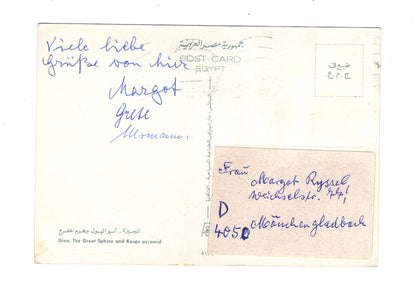 Viele liebe
Grüße von hier
Margot
Grete
جمهورية مصر العربية
POST CARD
EGYPT
Frau
Margot Ryssel
Weichselstr. 44
D
4050 Mönchengladbach
الجيزة - أبو الهول وهرم خفرع
Giza. The Great Sphinx and Keops pyramid